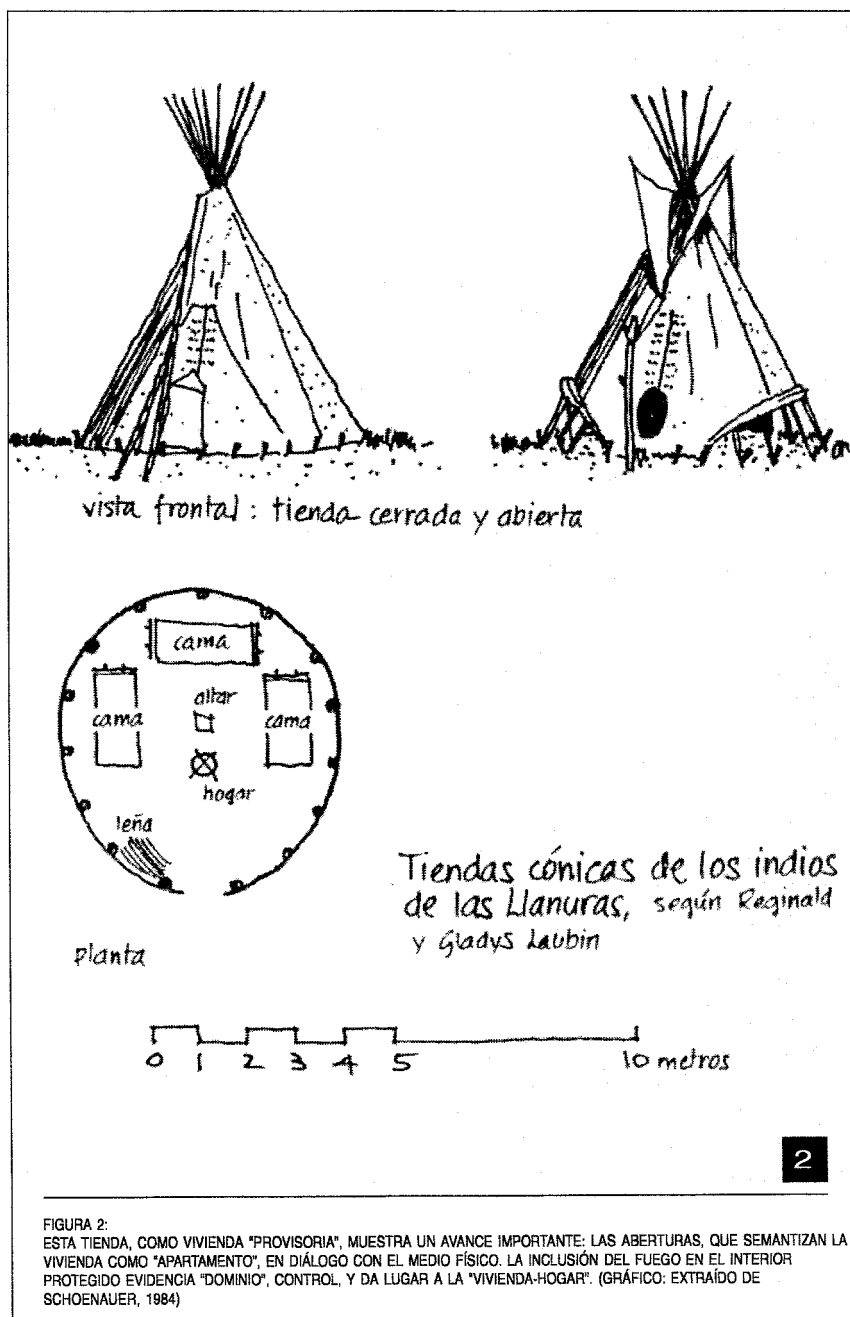 vista frontal : tienda cerrada y abierta
cama
cama
altar
cama
hogar
leña
planta
Tiendas cónicas de los indios
de las Llanuras, según Reginald
y Gladys Laubin
0 1 2 3 4 5 10 metros
2
FIGURA 2:
ESTA TIENDA, COMO VIVIENDA "PROVISORIA", MUESTRA UN AVANCE IMPORTANTE: LAS ABERTURAS, QUE SEMANTIZAN LA
VIVIENDA COMO "APARTAMENTO", EN DIÁLOGO CON EL MEDIO FÍSICO. LA INCLUSIÓN DEL FUEGO EN EL INTERIOR
PROTEGIDO EVIDENCIA "DOMINIO", CONTROL, Y DA LUGAR A LA "VIVIENDA-HOGAR". (GRÁFICO: EXTRAÍDO DE
SCHOENAUER, 1984)